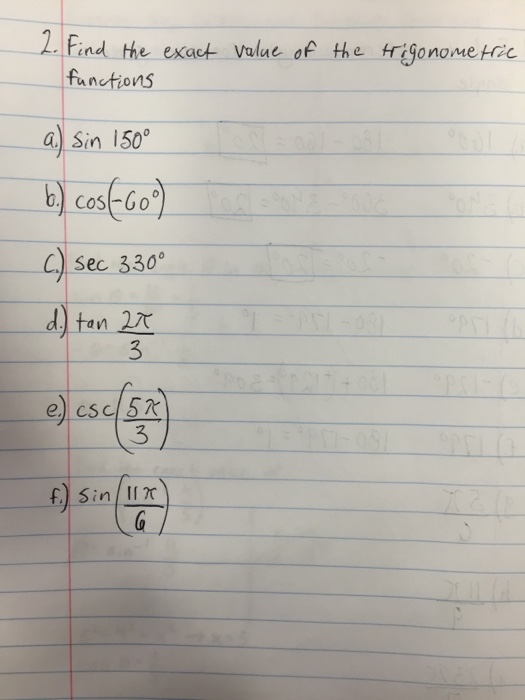 2. Find the exact value of the trigonometric
functions
a.) sin 150°
b.) cos(-60°)
c.) sec 330°
d.) tan 2π/3
e.) csc(5π/3)
f.) sin(11π/6)